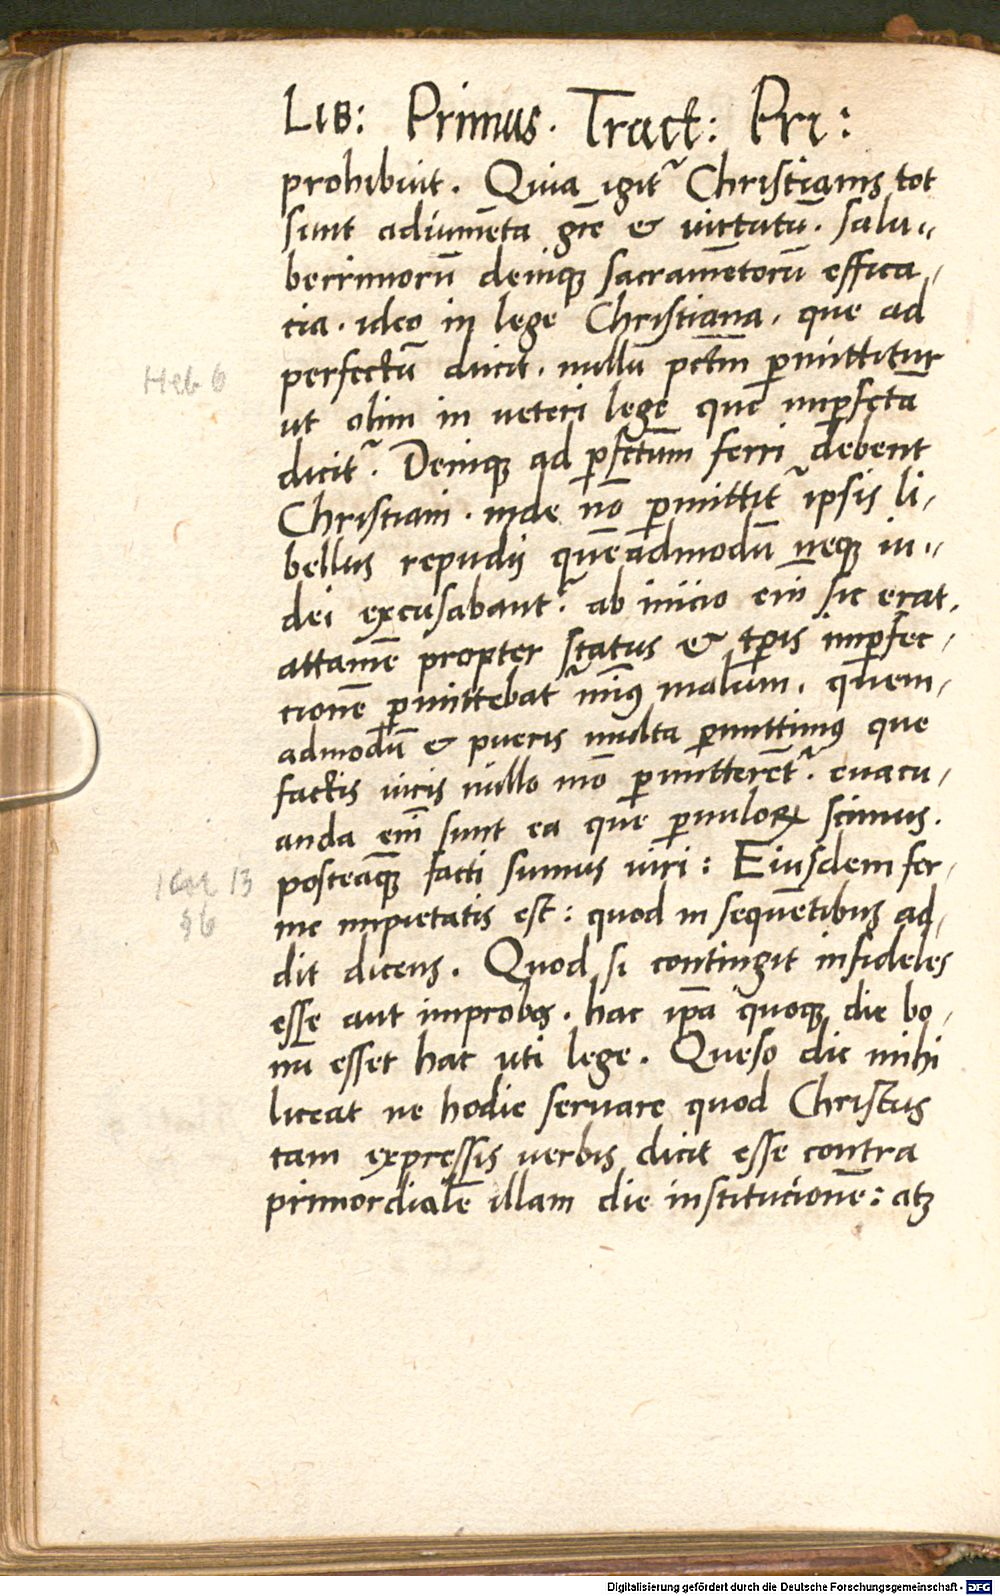 LIB: Primus. Tract: Pri:
prohibuit. Quia igit᷒ Christianis tot
sunt adiumēta gr̄e & virtutū. salu„
berrimorū deniqꝫ sacramētorū effica,
cia. ideo in lege Christiana, que ad
perfectū ducit, nullū pctm̄ ꝑmittitur
Heb 6
ut olim in veteri lege que imꝑfcta
dicit᷒. Deniqꝫ ad ꝑfctum ferri debent
Christiani. inde nō ꝑmittit᷒ ipsis li,
bellus repudij quēadmodū neqꝫ iu„
dei excusabant᷒. ab inicio em̄ sic erat,
attamē propter status & tꝑis imꝑfec,
tionē ꝑmittebat᷒ minꝰ malum, quem,
admodū & pueris multa ꝑmittimꝰ que
factis viris nullo mō ꝑmitterēt᷒. evacu,
anda em̄ sunt ea que ꝑvuloꝝ scimus.
posteaqꝫ facti sumus viri: Eiusdem fer,
1 Cor 13
me impietatis est: quod in sequētibus ad,
dit dicens. Quod si contingit infideles
esse aut improbos. hac ip̄a quoqꝫ die bo,
nū esset hac uti lege. Queso dic mihi
liceat ne hodie servare quod Christus
tam expressis verbis dicit esse contra
primordialē illam die institucionē: atqꝫ
Digitalisierung gefördert durch die Deutsche Forschungsgemeinschaft - DFG